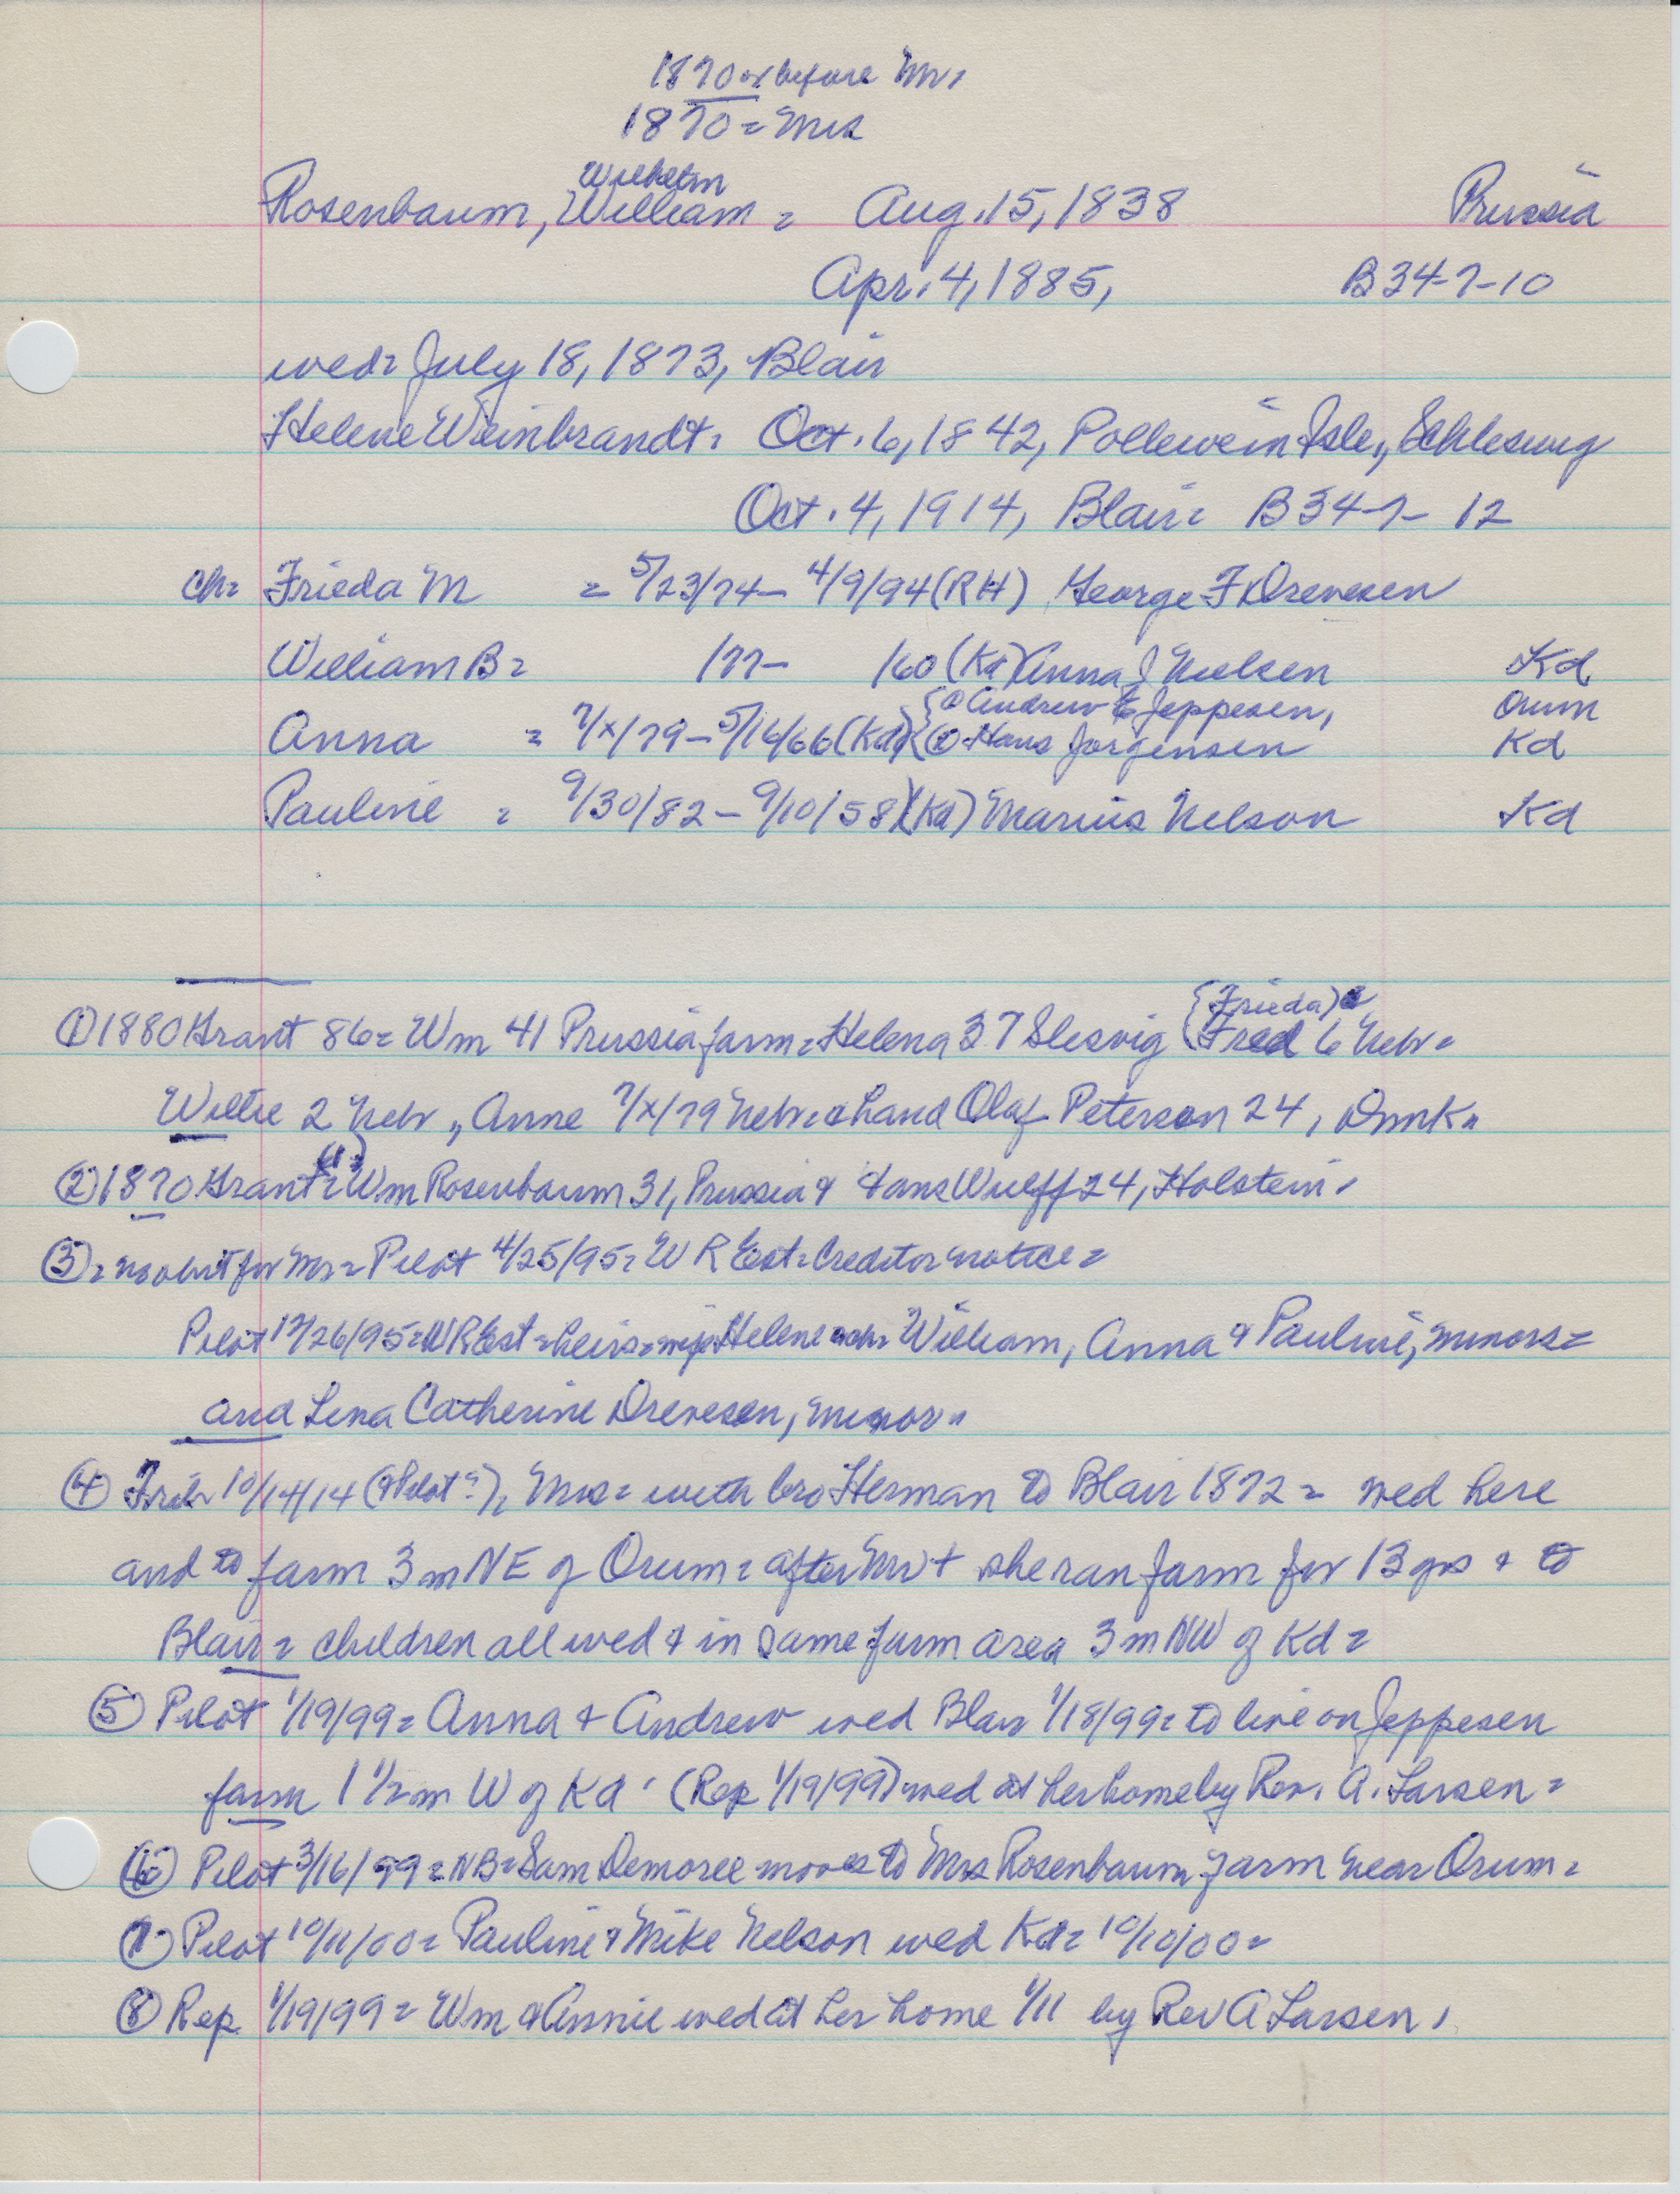 1870 or before Mr,
1870 = Mrs
Wilhelm
Rosenbaum, William = Aug. 15, 1838 Prussia
Apr. 4, 1885, B 34-7-10
wed= July 18, 1873, Blair
Helene Weinbrandt. Oct. 6, 1842, Pollewein Isle,, Schleswig
Oct. 4, 1914, Blair= B 34-7-12
ch= Frieda M = 5/23/74- 4/9/94 (RH) George F Drevesen
William B= /77- /60 (Kd) Anna J Nielsen Kd
{① Andrew E Jeppesen, Orum
Anna = 7/x/79-5/16/66 (Kd) {② Hans Jorgensen Kd
Pauline = 9/30/82-9/10/58 (Kd) Marius Nelson Kd
{Frieda)
① 1880 Grant 86= Wm 41 Prussia farm= Helena 37 Slesvig (Fred 6 Nebr=
Willie 2 Nebr ,, Anne 7/x/79 Nebr. & hand Olaf Peterson 24, Dnmk,,
② 1870 Grant (11)= Wm Rosenbaum 31, Prussia & Hans Wulff 24, Holstein,
③ = no obit for Mr= Pilot 4/25/95= W R Est= Creditor notice=
Pilot 12/26/95= WR Est= heirs= wife Helene & ch= William, Anna & Pauline, minors=
and Lena Catherine Drevesen, minor,,
④ Trib 10/14/14 (& Pilot ?), Mrs= with bro Herman to Blair 1872= wed here
and to farm 3 m NE of Orum= after Mr + she ran farm for 13 yrs & to
Blair= children all wed & in same farm area 3 m NW of Kd=
⑤ Pilot 1/19/99= Anna & Andrew wed Blair 1/18/99= to live on Jeppesen
farm 1 1/2 m W of Kd ' (Rep 1/19/99) wed at her home by Rev. A. Larsen=
⑥ Pilot 3/16/99= NB= Sam Demoree moves to Mrs Rosenbaum farm near Orum=
⑦ Pilot 10/11/00= Pauline & Mike Nelson wed Kd= 10/10/00=
⑧ Rep 1/19/99= Wm & Annie wed at her home 1/11 by Rev A Larsen,